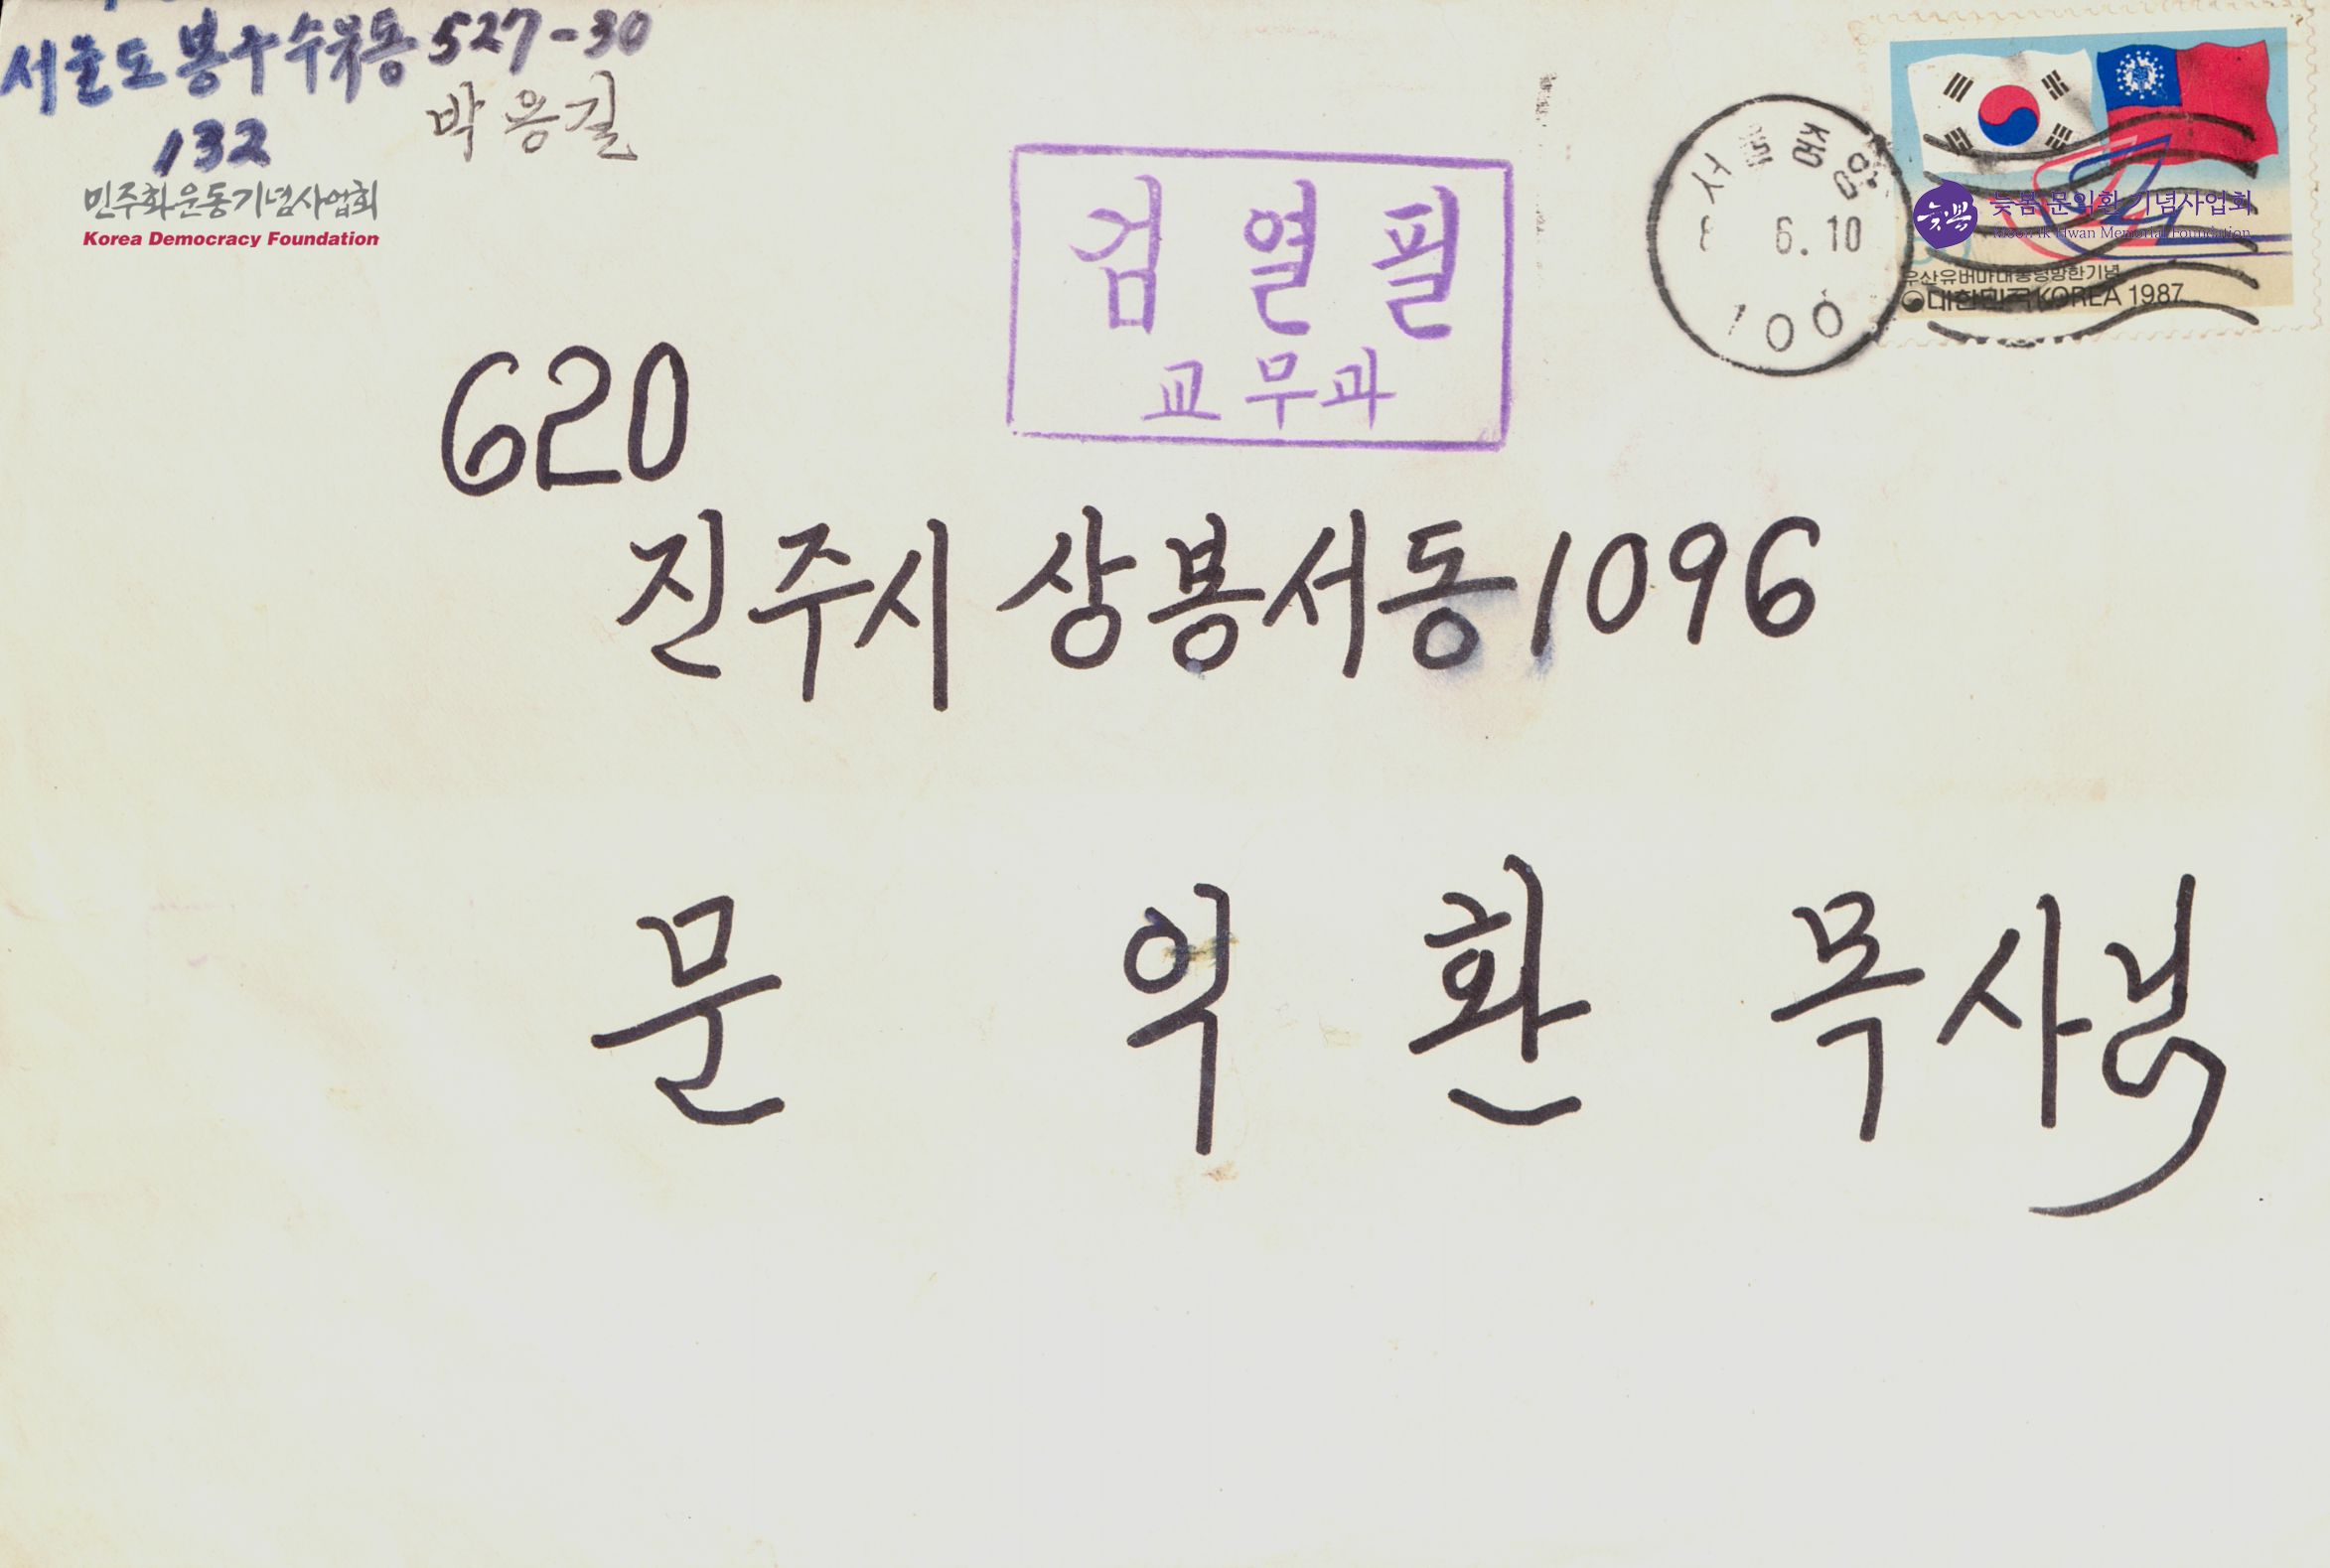 서울도봉구수유동 527-30
132 박용길
민주화운동기념사업회
Korea Democracy Foundation
검열필
교무과
서울중앙
6.10
100
늦봄 문익환 기념사업회
Moon Ik Hwan Memorial Foundation
우산유버마대통령방한기념
대한민국 KOREA 1987
620
진주시 상봉서동 1096
문익환 목사님